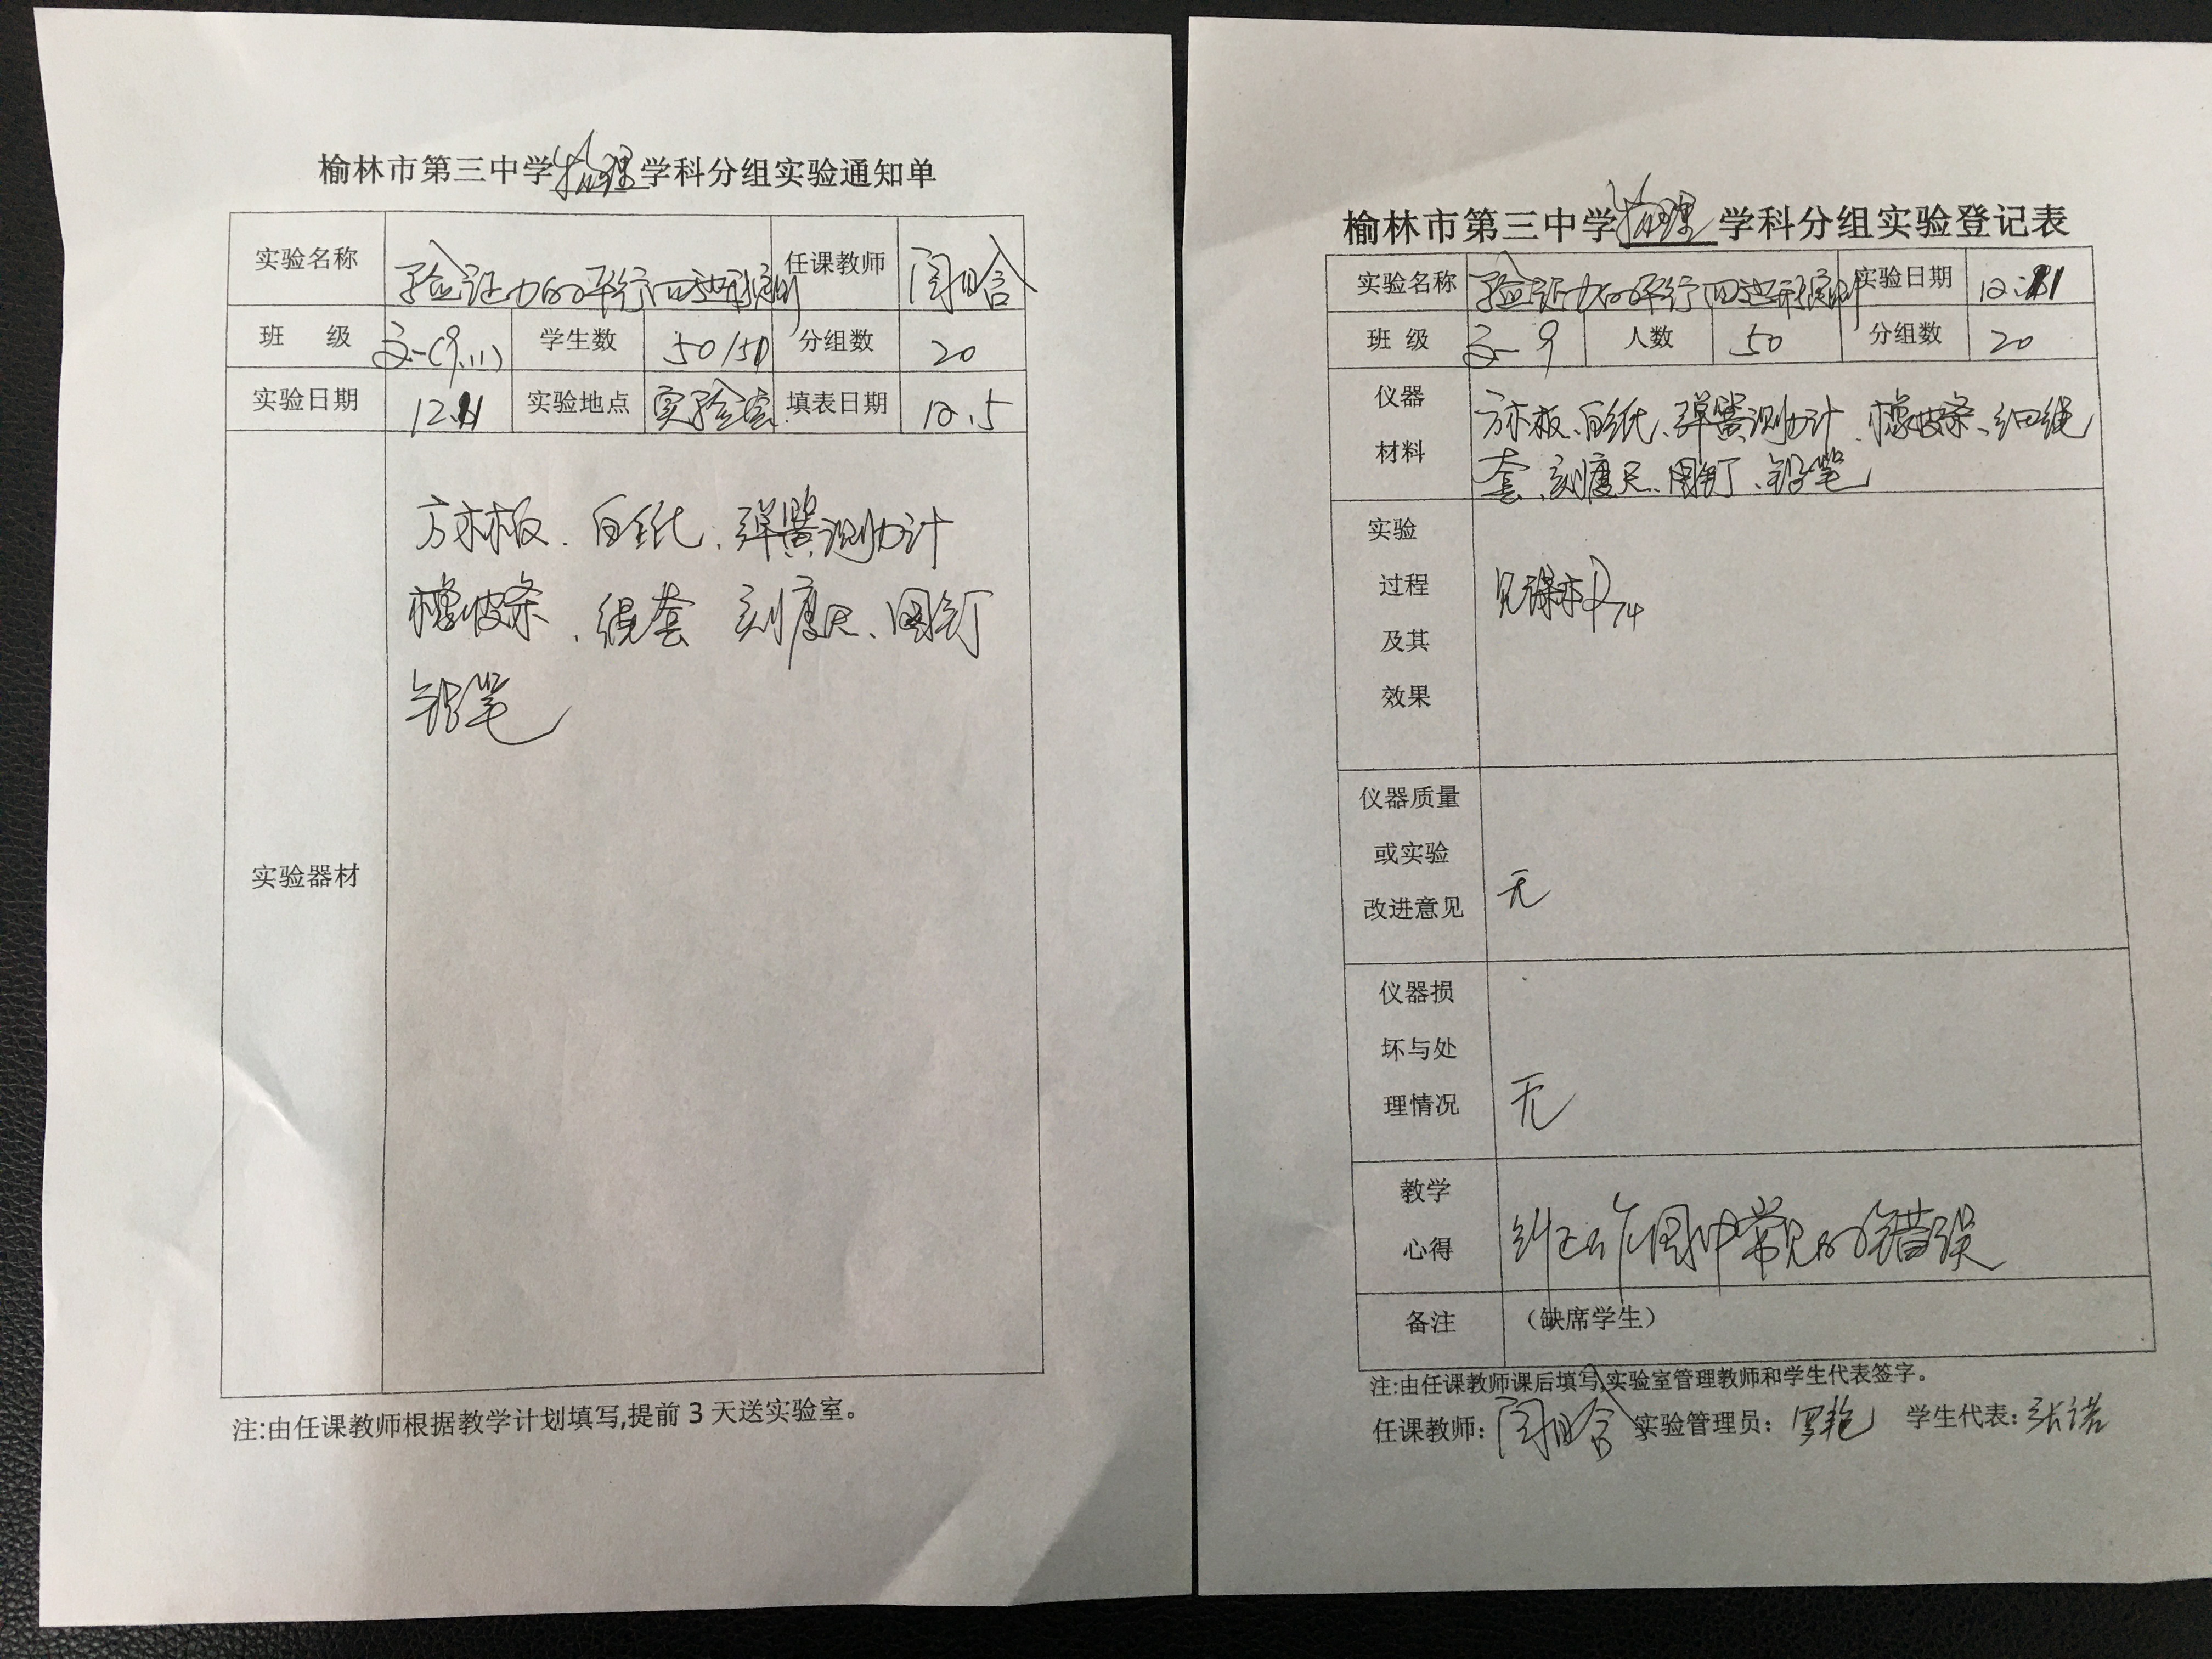 榆林市第三中学物理学科分组实验通知单
实验名称 验证力的平行四边形定则 任课教师
班 级 高一(9.11) 学生数 50/50 分组数 20
实验日期 12.11 实验地点 实验室 填表日期 12.5
实验器材
方木板、白纸、弹簧测力计
橡皮条、绳套 刻度尺、图钉
铅笔
注:由任课教师根据教学计划填写,提前3天送实验室。
榆林市第三中学物理学科分组实验登记表
实验名称 验证力的平行四边形定则 实验日期 12.11
班 级 高一 9 人数 50 分组数 20
仪器
材料
方木板、白纸、弹簧测力计、橡皮条、细绳
套、刻度尺、图钉、铅笔
实验
过程
及其
效果
见课本P74
仪器质量
或实验
改进意见
无
仪器损
坏与处
理情况
无
教学
心得
纠正作图中常见的错误
备注 (缺席学生)
注:由任课教师课后填写,实验室管理教师和学生代表签字。
任课教师: 实验管理员: 罗艳 学生代表: 张诺